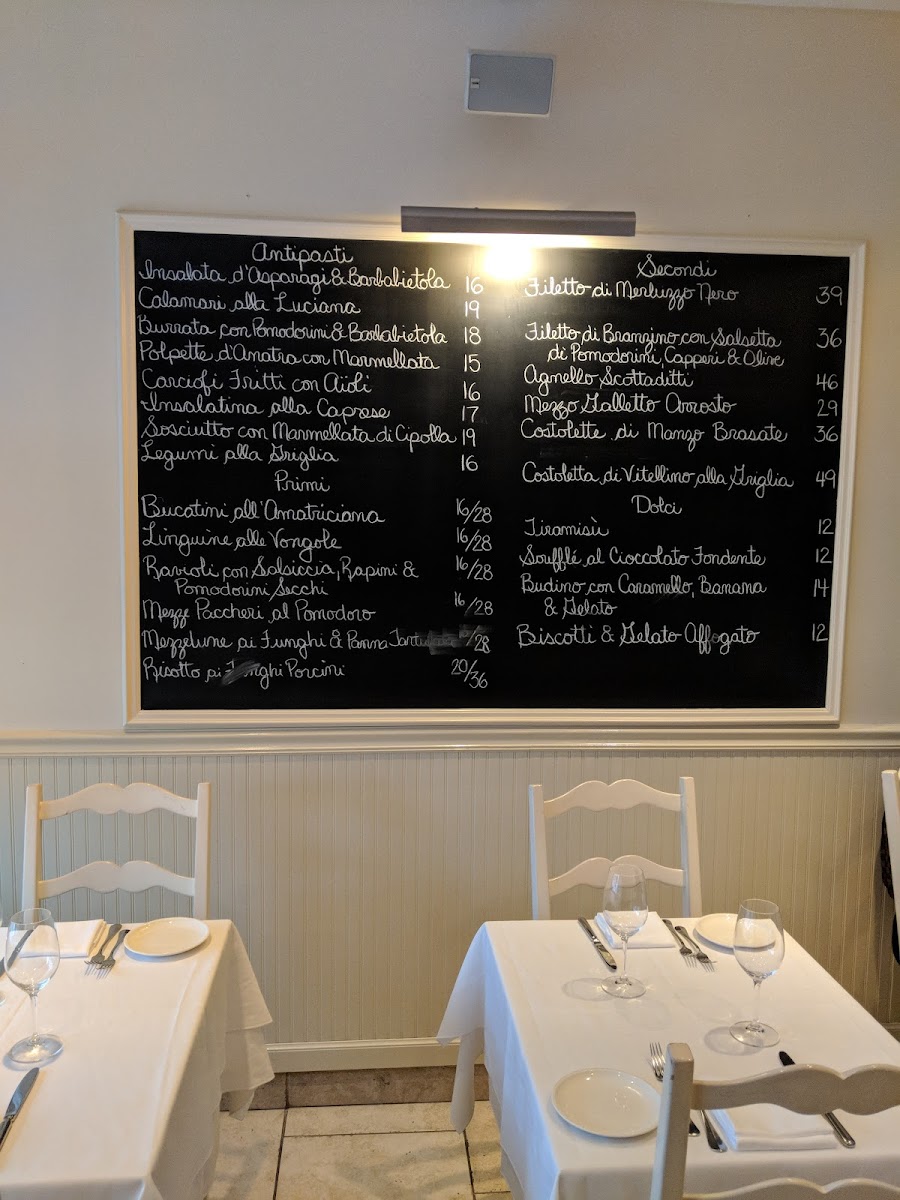 Antipasti
Insalata d'Asparagi & Barbabietola 16
Calamari alla Luciana 19
Burrata con Pomodorini & Barbabietola 18
Polpette d'Anatra con Marmellata 15
Carciofi Fritti con Aioli 16
Insalatina alla Caprese 17
Sosciutto con Marmellata di Cipolla 19
Legumi alla Griglia 16
Primi
Bucatini all'Amatriciana 16/28
Linguine alle Vongole 16/28
Ravioli con Salsiccia, Rapini & 16/28
Pomodorini Secchi
Mezze Paccheri al Pomodoro 16/28
Mezzelune ai Funghi & Panna /28
Risotto ai Funghi Porcini 20/36
Secondi
Filetto di Merluzzo Nero 39
Filetto di Branzino con Salsetta 36
di Pomodorini, Capperi & Olive
Agnello Scottaditti 46
Mezzo Galletto Arrosto 29
Costolette di Manzo Brasate 36
Costoletta di Vitellino alla Griglia 49
Dolci
Tiramisù 12
Soufflé al Cioccolato Fondente 12
Budino con Caramello, Banana 14
& Gelato
Biscotti & Gelato Affogato 12